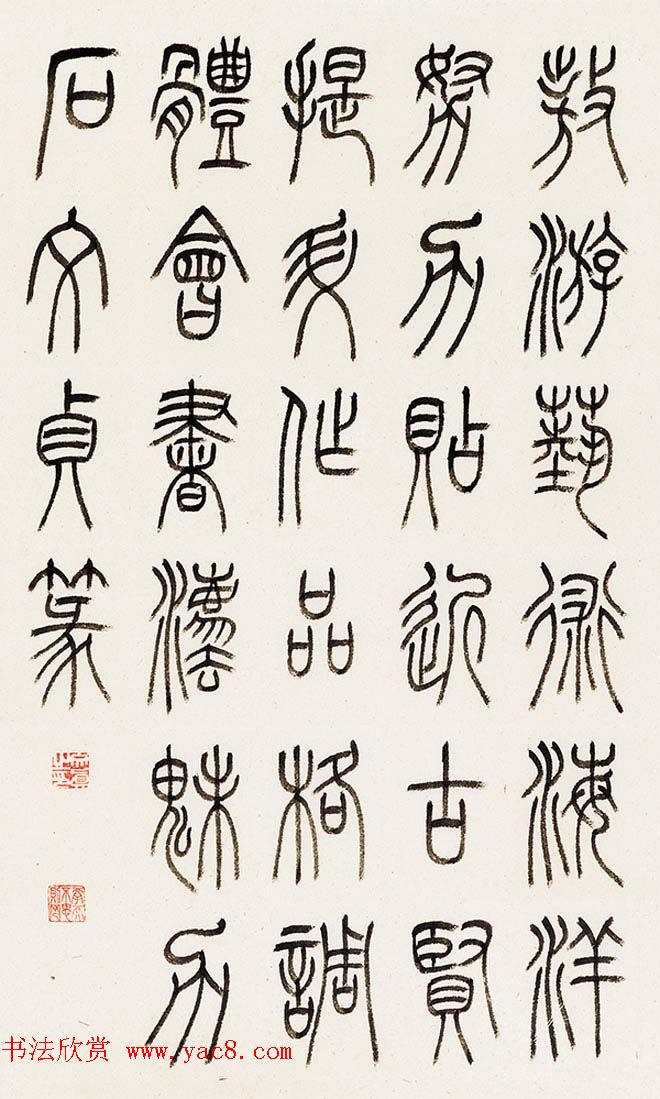 敖游藝術海洋
努力貼近古賢
提升作品格調
體會書灋魅力
石文貞篆
书法欣赏 www.yac8.com